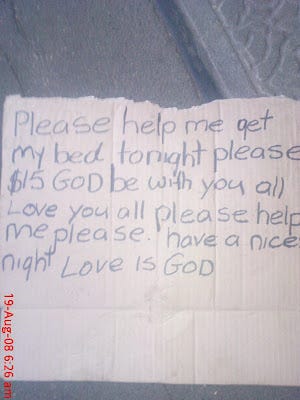 Please help me get
my bed tonight please
$15 GOD be with you all
Love you all please help
me please. have a nice
night Love is GOD
19-Aug-08 6:26 am